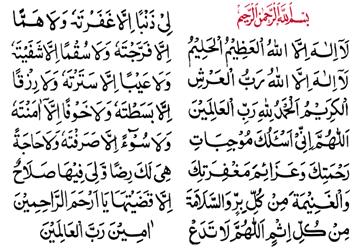 بسم الله الرحمن الرحيم
لَا اِلٰهَ اِلَّا اللهُ الْعَظِيْمُ الْحَلِيْمُ
لَا اِلٰهَ اِلَّا اللهُ رَبُّ الْعَرْشِ
الْكَرِيْمِ اَلْحَمْدُ لِلهِ رَبِّ الْعَالَمِيْنَ
اَللّٰهُمَّ اِنِّيْ اَسْئَلُكَ مُوْجِبَاتِ
رَحْمَتِكَ وَعَزَائِمَ مَغْفِرَتِكَ
وَالْغَنِيْمَةَ مِنْ كُلِّ بِرٍّ وَالسَّلَامَةَ
مِنْ كُلِّ اِثْمٍ اَللّٰهُمَّ لَا تَدَعْ
لِيْ ذَنْبًا اِلَّا غَفَرْتَهٗ وَلَا هَمًّا
اِلَّا فَرَّجْتَهٗ وَلَا سُقْمًا اِلَّا شَفَيْتَهٗ
وَلَا عَيْبًا اِلَّا سَتَرْتَهٗ وَلَا رِزْقًا
اِلَّا بَسَطْتَهٗ وَلَا خَوْفًا اِلَّا اٰمَنْتَهٗ
وَلَا سُوْٓءً اِلَّا صَرَفْتَهٗ وَلَا حَاجَةً
هِيَ لَكَ رِضًا وَّلِيَ فِيْهَا صَلَاحٌ
اِلَّا قَضَيْتَهَا يَا اَرْحَمَ الرَّاحِمِيْنَ
اٰمِيْنَ رَبَّ الْعَالَمِيْنَ